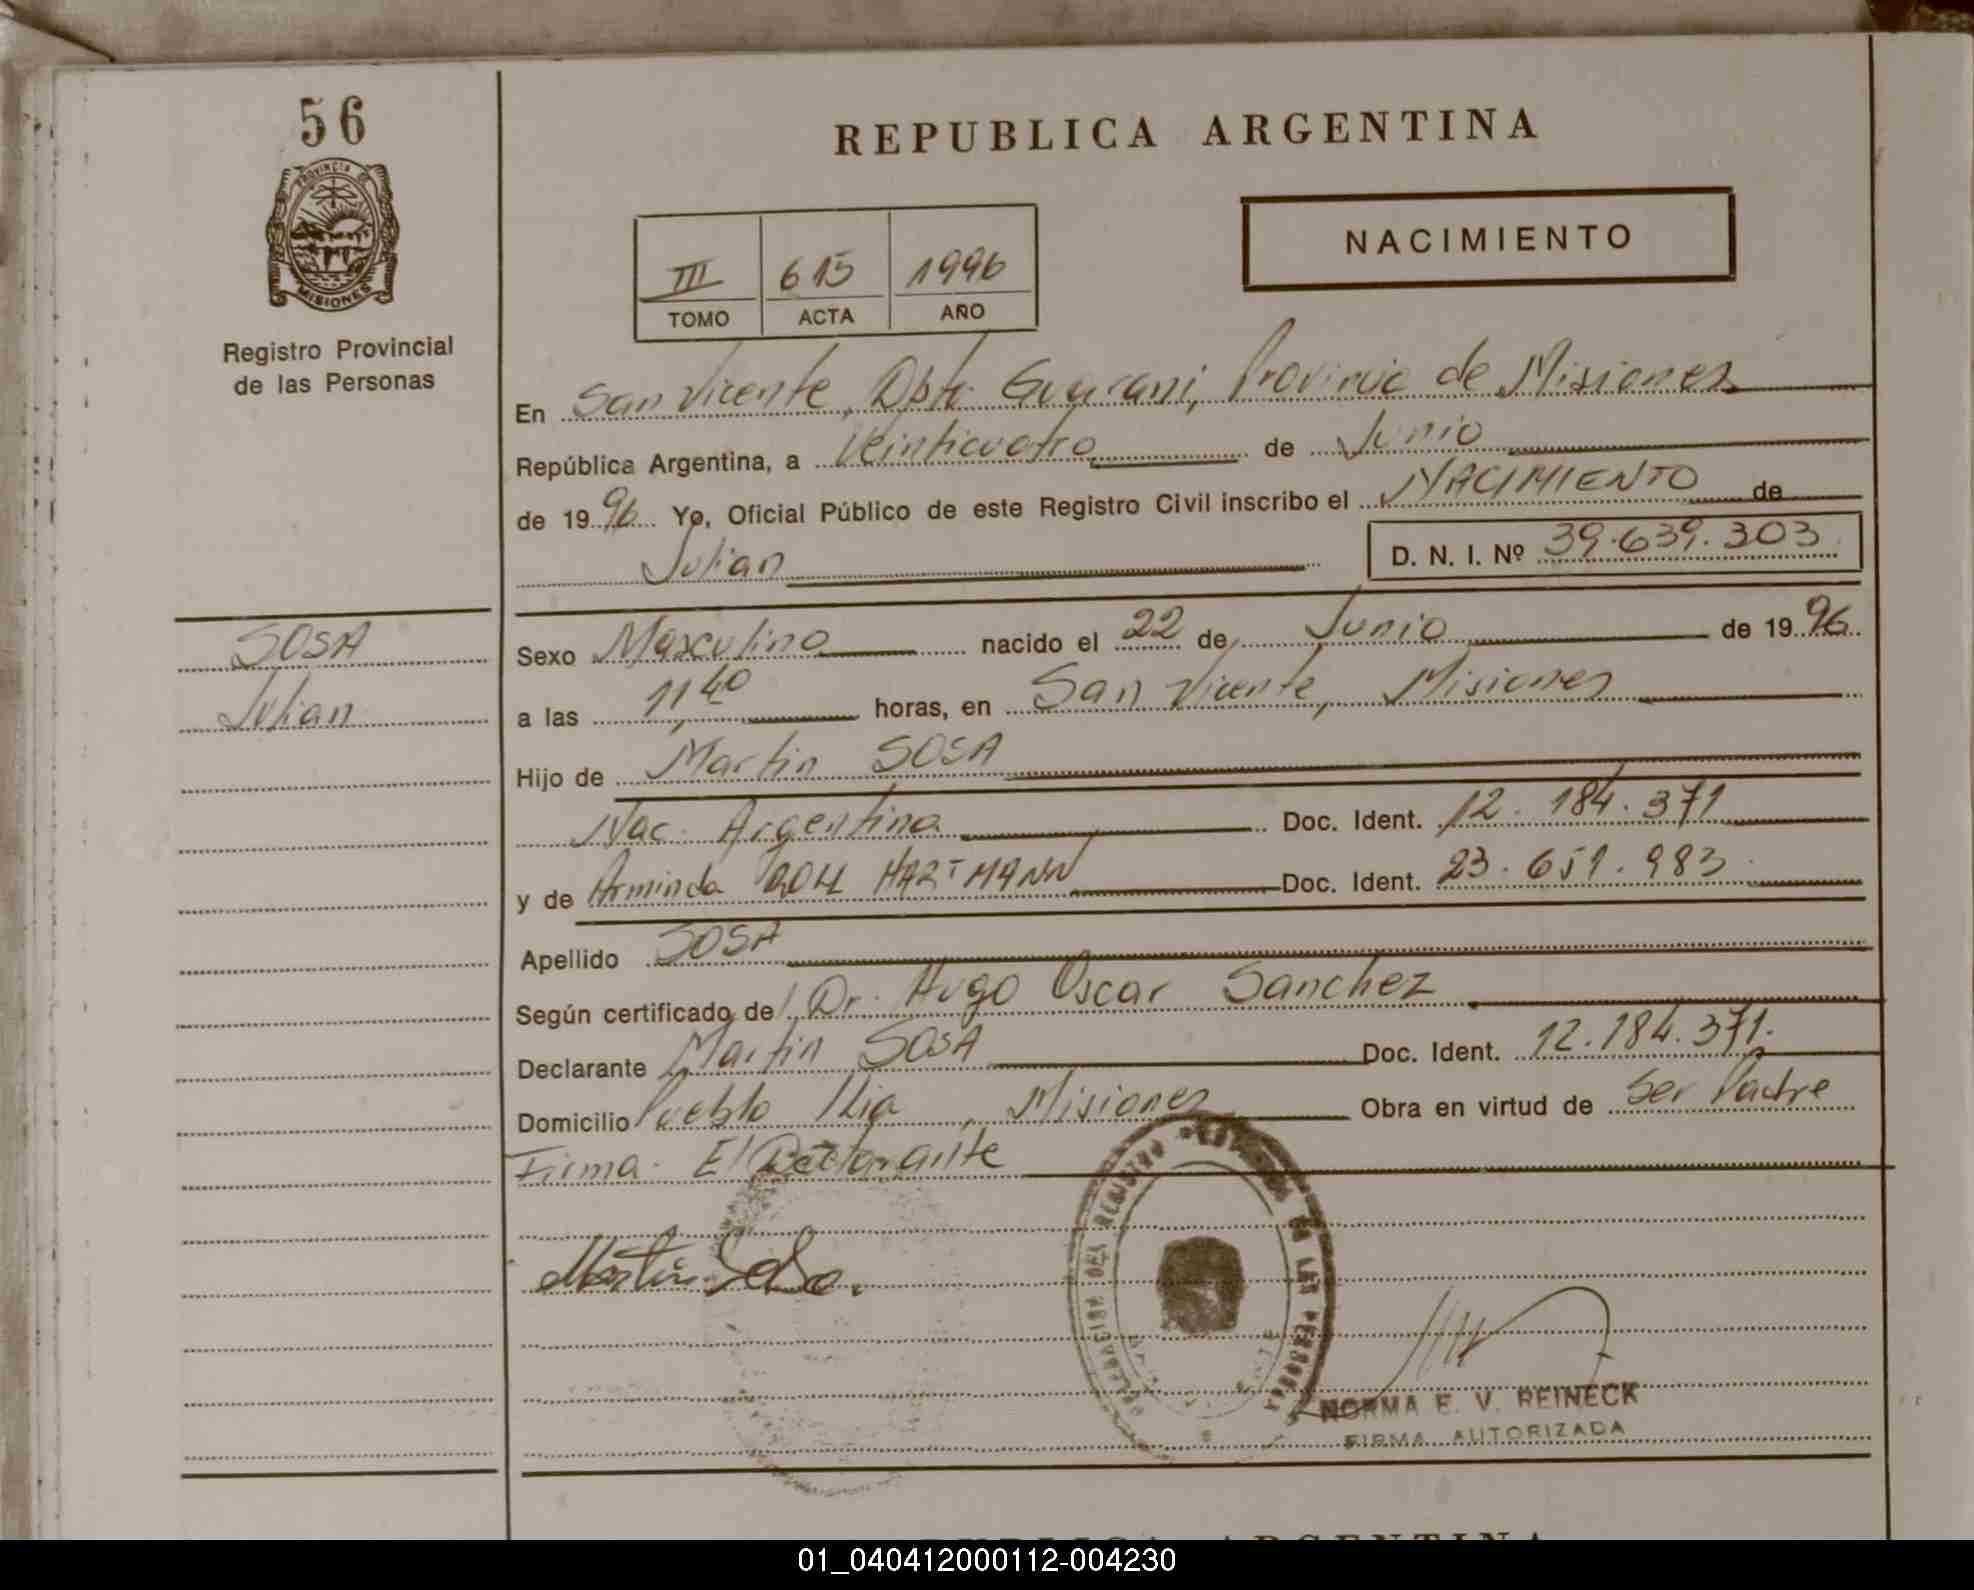 56
PROVINCIA DE
MISIONES
Registro Provincial
de las Personas
REPUBLICA ARGENTINA
NACIMIENTO
III 615 1996
TOMO ACTA AÑO
En San Vicente, Dpto. Guarani, Provincia de Misiones
República Argentina, a Veinticuatro de Junio
de 1996 Yo, Oficial Público de este Registro Civil inscribo el NACIMIENTO de
Julian D. N. I. Nº 39.639.303
SOSA
Julian
Sexo Masculino nacido el 22 de Junio de 1996
a las 11,40 horas, en San Vicente, Misiones
Hijo de Martin SOSA
Nac. Argentina Doc. Ident. 12.184.371
y de Arminda HARTMANN Doc. Ident. 23.651.983
Apellido SOSA
Según certificado de Dr. Hugo Oscar Sanchez
Declarante Martin SOSA Doc. Ident. 12.184.371.
Domicilio Pueblo Illia, Misiones Obra en virtud de Ser Padre
Firma. El Declarante
Martin Sosa.
DEL REGISTRO DE LAS PERSONAS
NORMA E. V. REINECK
FIRMA AUTORIZADA
REPUBLICA ARGENTINA
01_040412000112-004230